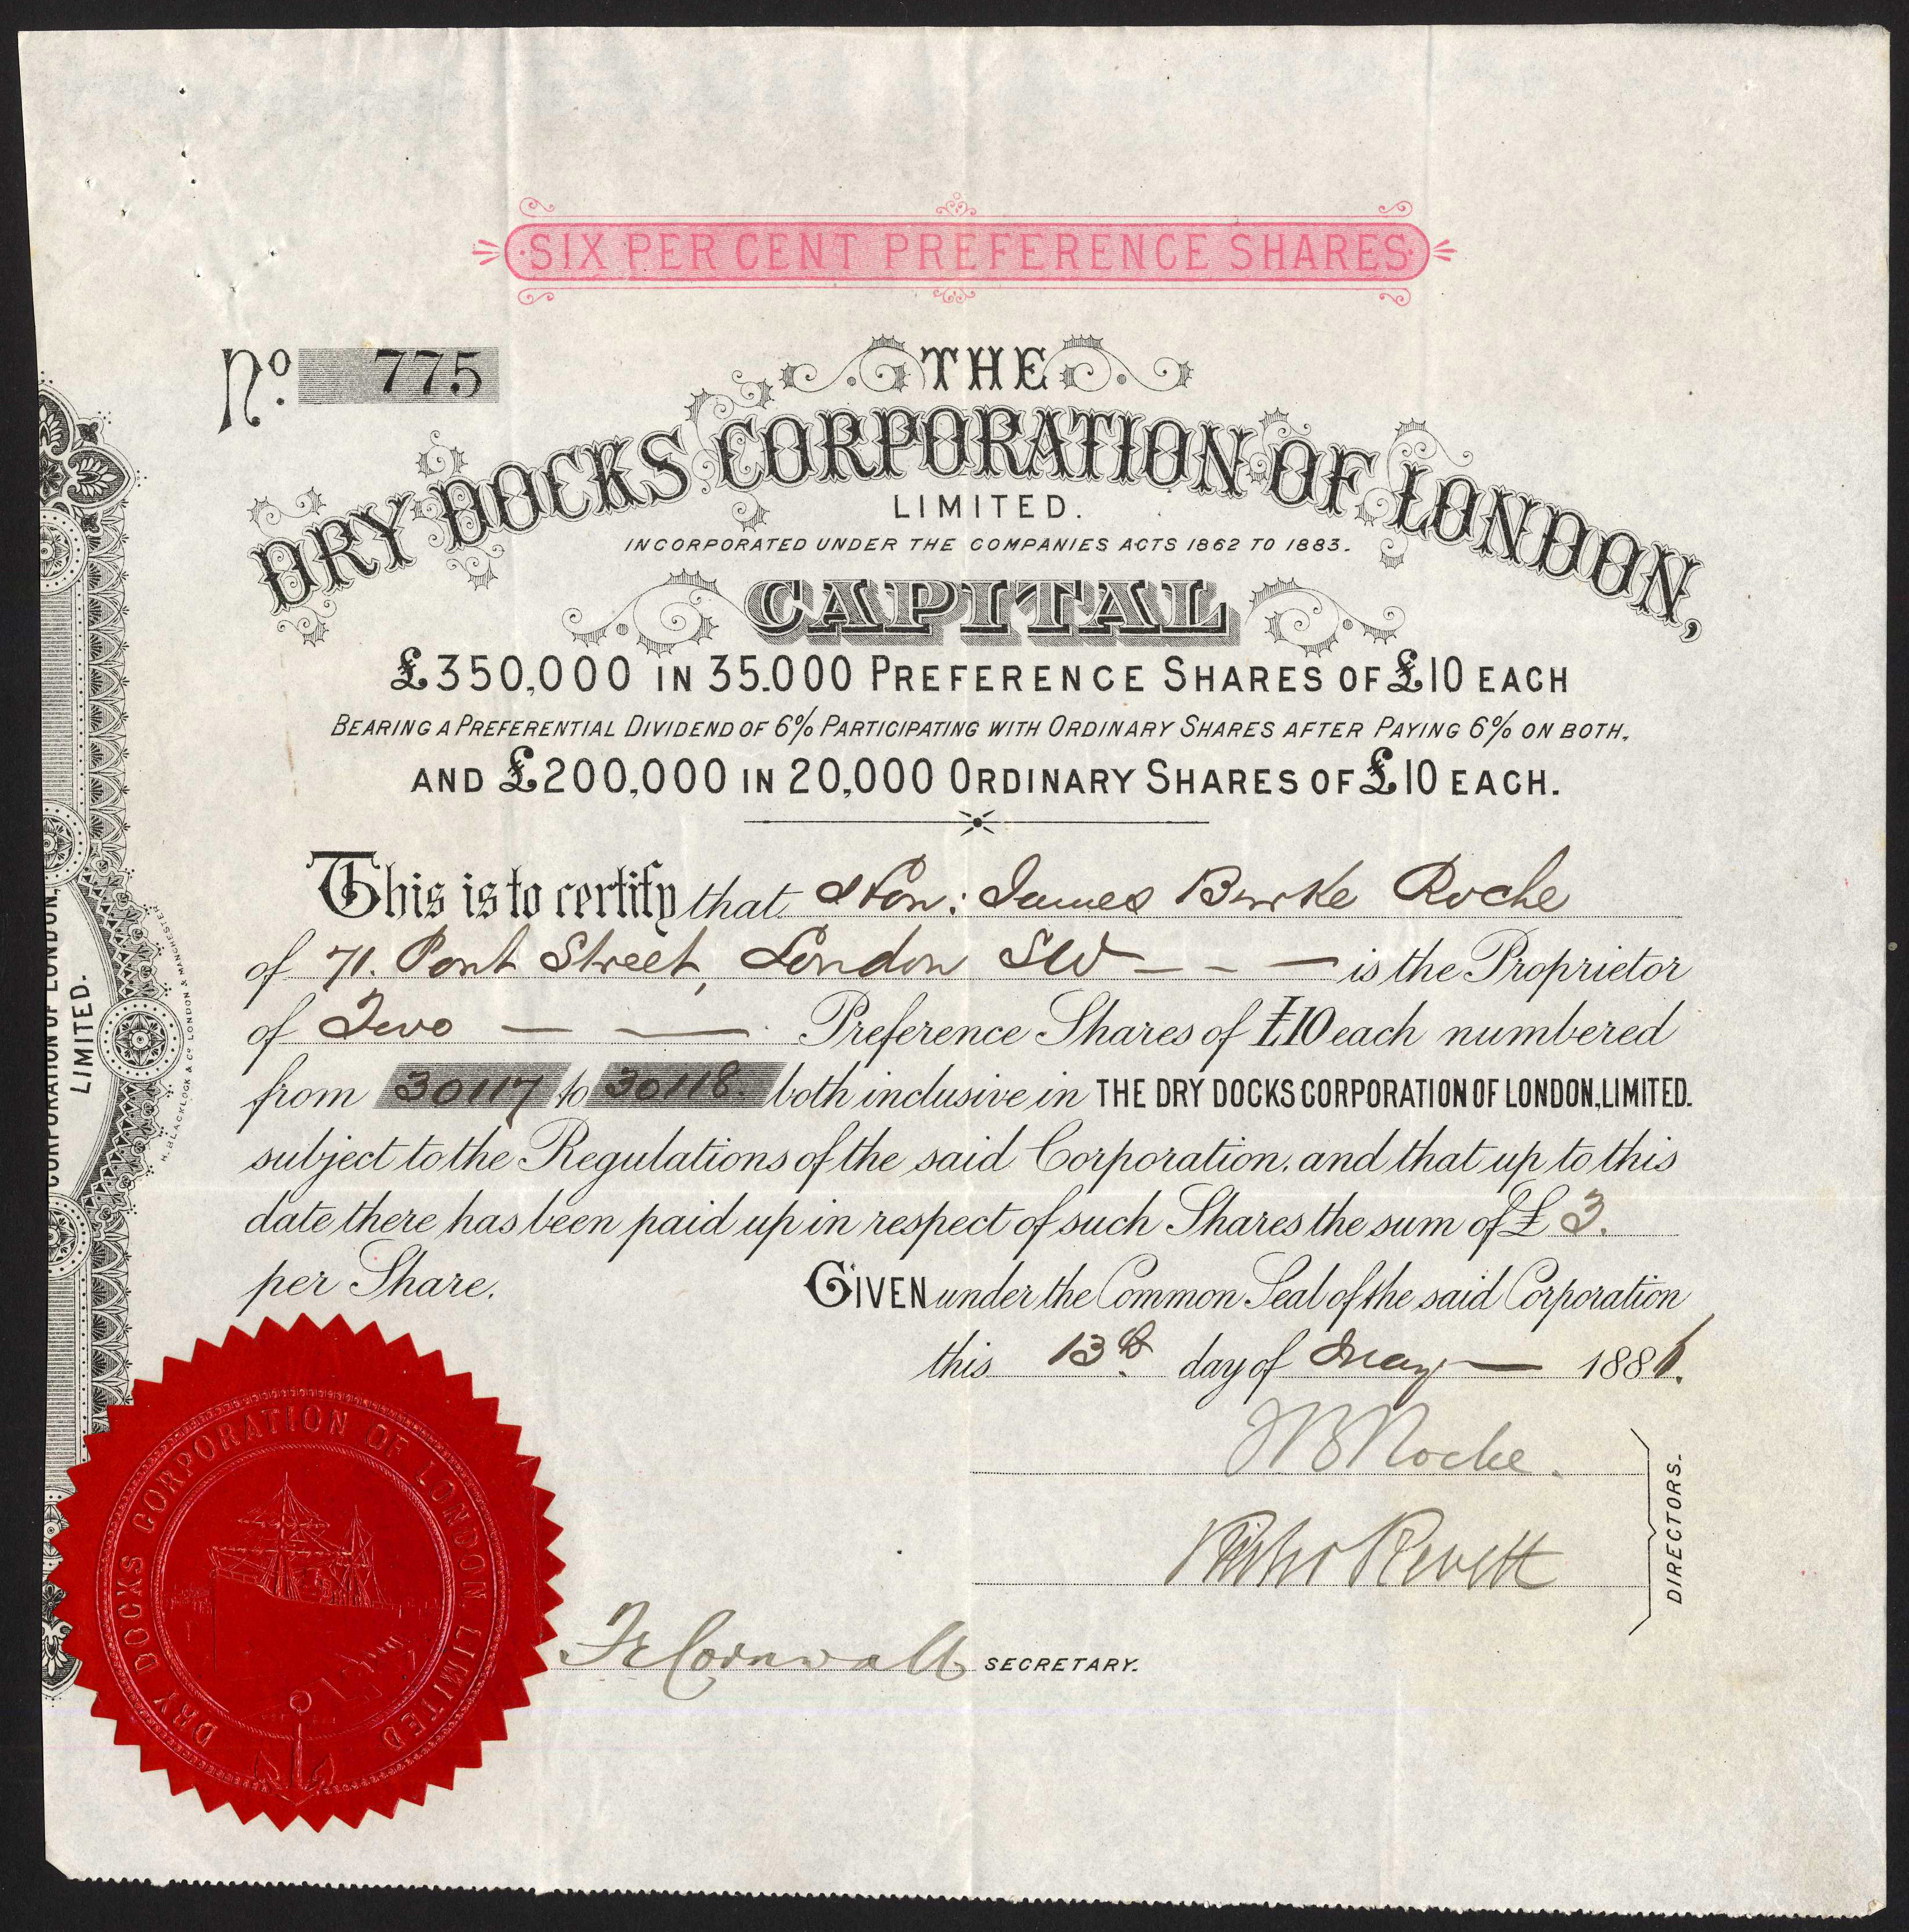 SIX PER CENT PREFERENCE SHARES
No. 775
THE
DRY DOCKS CORPORATION OF LONDON,
LIMITED.
INCORPORATED UNDER THE COMPANIES ACTS 1862 TO 1883.
CAPITAL
£350,000 IN 35.000 PREFERENCE SHARES OF £10 EACH
BEARING A PREFERENTIAL DIVIDEND OF 6% PARTICIPATING WITH ORDINARY SHARES AFTER PAYING 6% ON BOTH,
AND £200,000 IN 20,000 ORDINARY SHARES OF £10 EACH.
This is to certify that Hon: James Burke Roche
of 71. Pont Street, London SW - - - is the Proprietor
of Two — — Preference Shares of £10 each numbered
from 30117 to 30118. both inclusive in THE DRY DOCKS CORPORATION OF LONDON, LIMITED.
subject to the Regulations of the said Corporation, and that up to this
date there has been paid up in respect of such Shares the sum of £ 3.
per Share.
GIVEN under the Common Seal of the said Corporation
this 13th day of May — 1886.
JB Roche.
Revett
DIRECTORS.
Cornwall SECRETARY.
CORPORATION OF LONDON,
LIMITED.
H. BLACKLOCK & CO LONDON & MANCHESTER
DRY DOCKS CORPORATION OF LONDON LIMITED